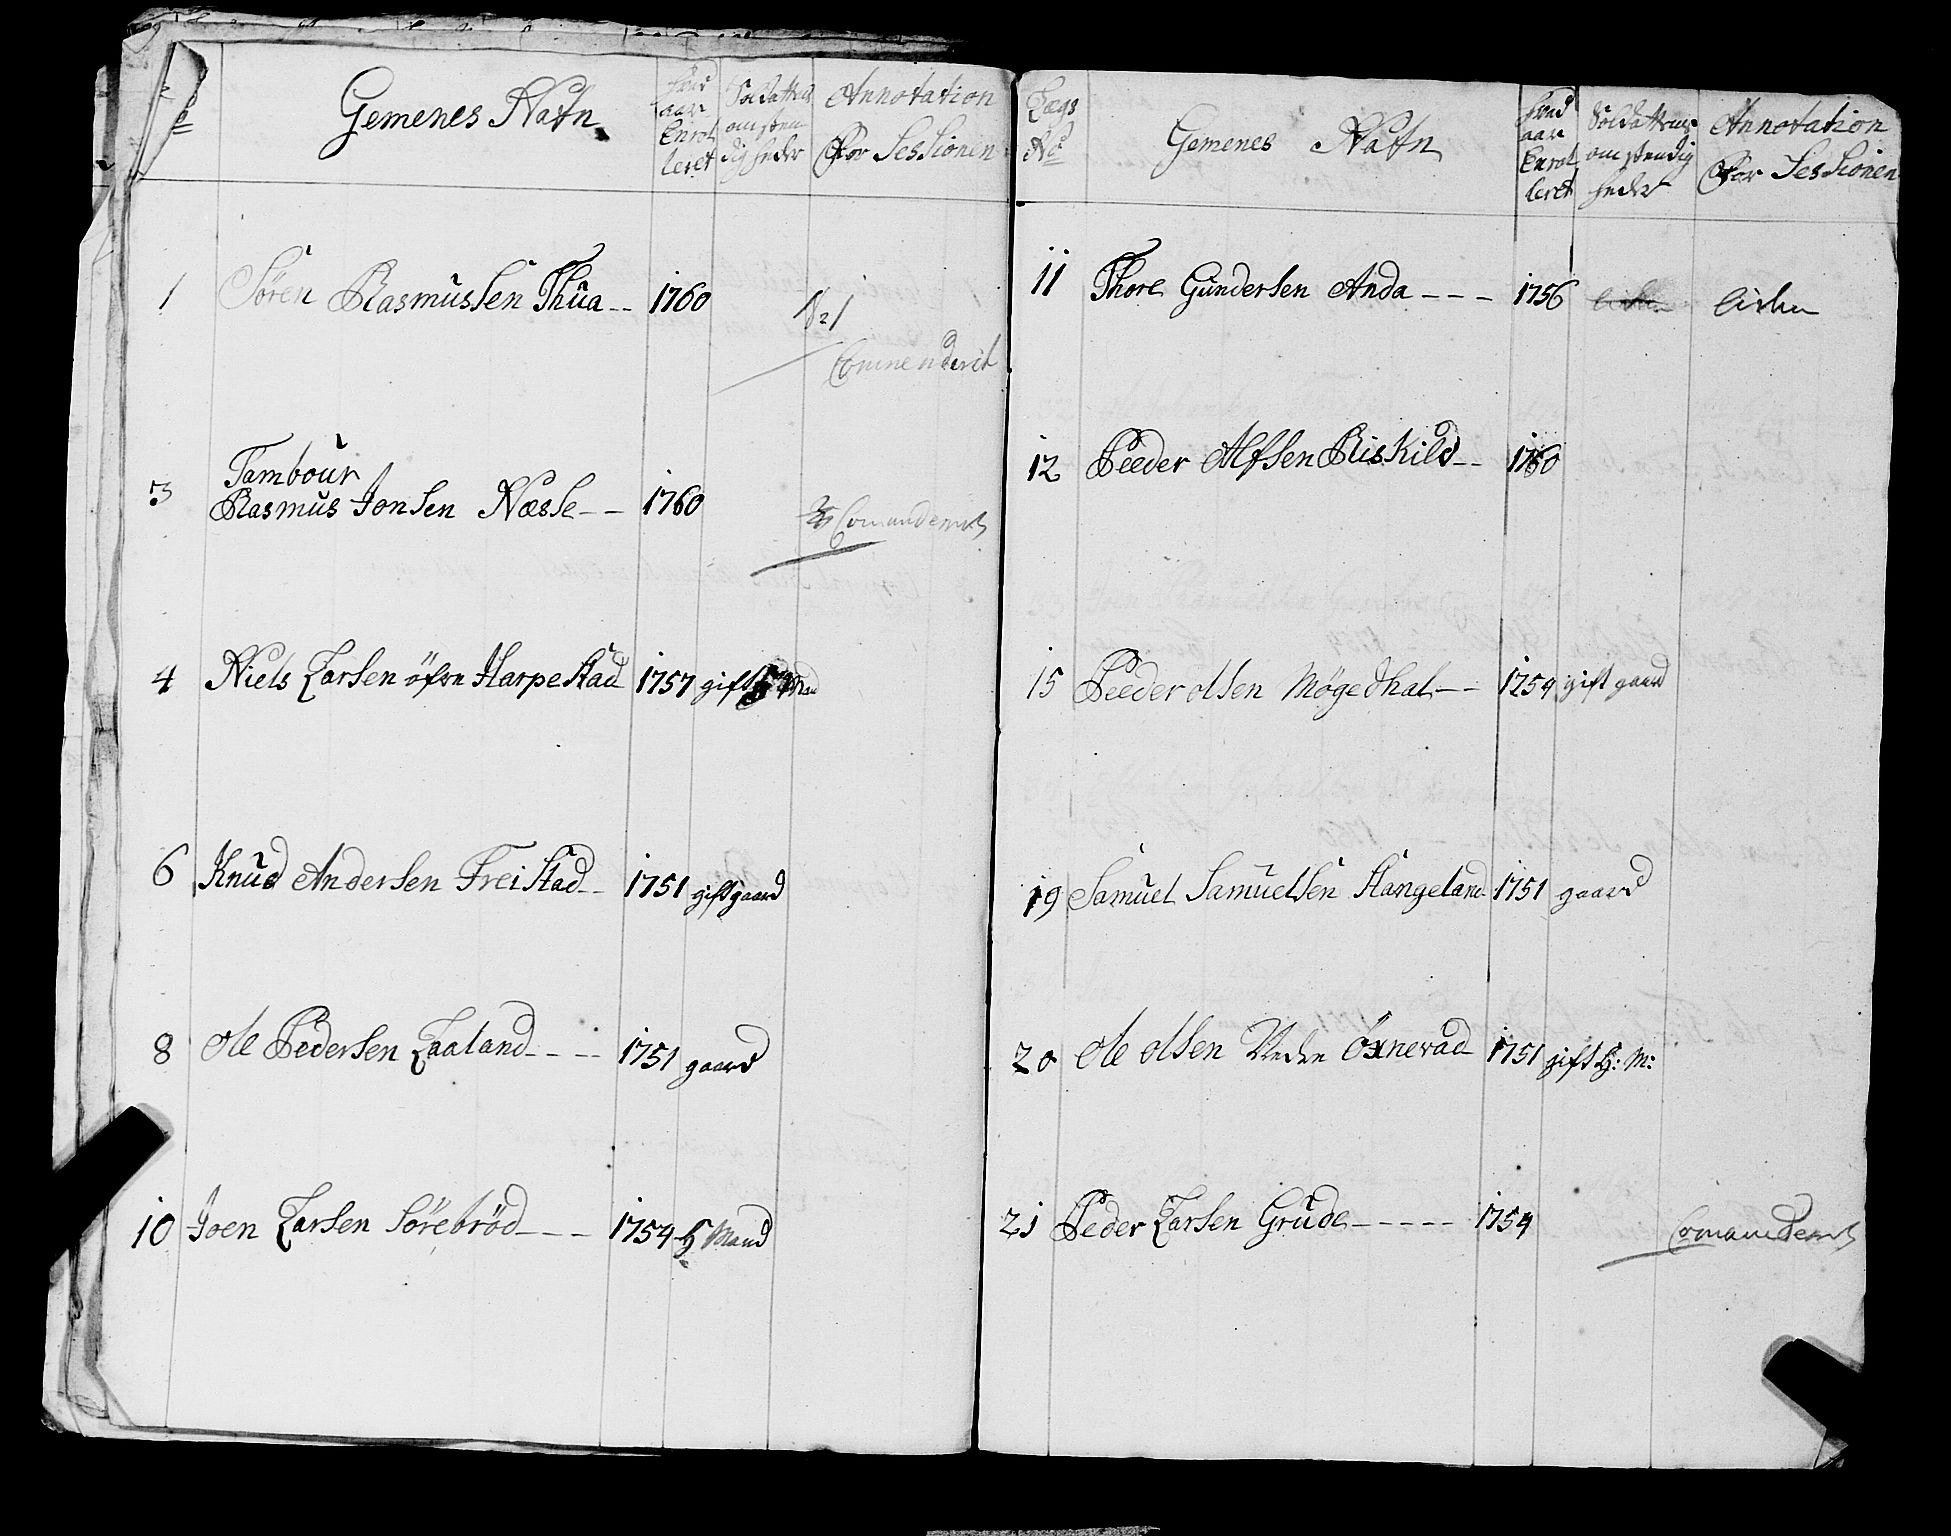 No Gemenes Nafn hvad aar Enrolleret Soldattens omstendigheder Annotation For Sessionen
1 Sören Rasmussen Thüa -- 1760
Commenderit
Tambour
3 Rasmus Jonsen Næsse -- 1760 Comanderit
4 Niels Larsen öfre Harpestad 1757 gift Mand
6 Knud Andersen Freistad - 1751 gift gaard
8 Ole Pedersen Laaland ---- 1751 gaard
10 Joen Larsen Sörebröd --- 1754 H Mand
Lægs No Gemenes Nafn hvad aar Enrolleret Soldattens omstendigheder Annotation For Sessionen
11 Thore Gundersen Anda --- 1756
12 Peeder Alfsen Riskild -- 1760
15 Peeder olsen Møgedhal -- 1754 gift gaard
19 Samuel Samuelsen Stangeland 1751 gaard
20 Ole olsen Nedre Öxnevad 1751 gift H: M:
21 Peder Larsen Grude ----- 1754 Comanderit